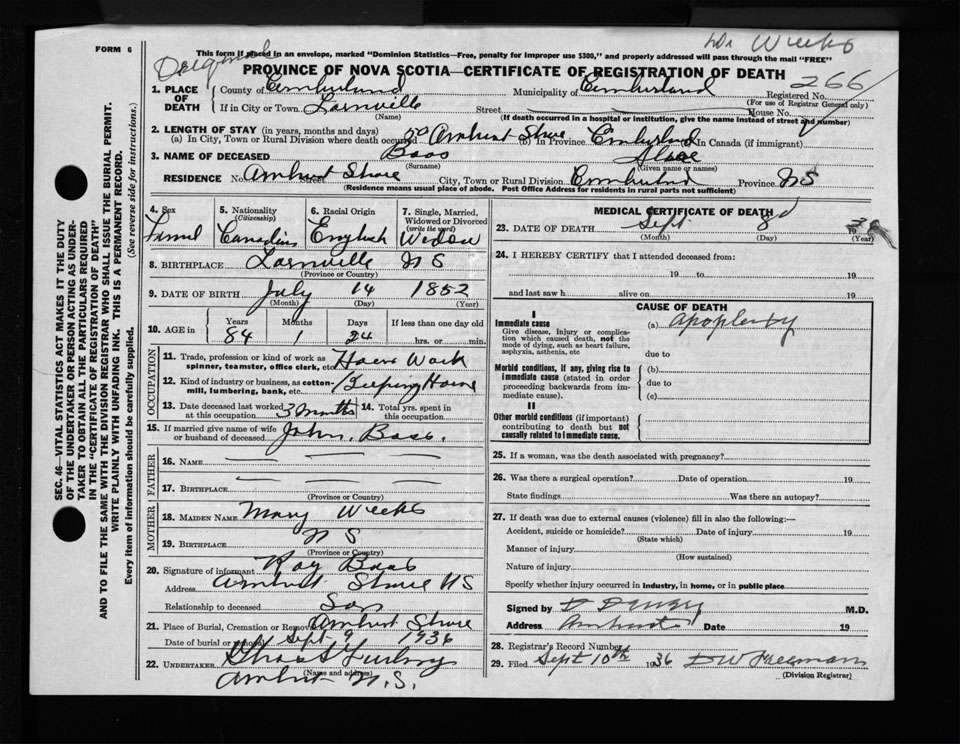 FORM 6
This form if placed in an envelope, marked "Dominion Statistics—Free, penalty for improper use $300," and properly addressed will pass through the mail "FREE"
PROVINCE OF NOVA SCOTIA—CERTIFICATE OF REGISTRATION OF DEATH
266
1. PLACE OF DEATH
County of Cumberland Municipality of Cumberland Registered No.
(For use of Registrar General only)
If in City or Town Street House No.
(Name) (If death occurred in a hospital or institution, give the name instead of street and number)
2. LENGTH OF STAY (in years, months and days)
(a) In City, Town or Rural Division where death occurred 50 Amherst Shore (b) In Province Cumberland (c) In Canada (if immigrant)
3. NAME OF DECEASED Baos
(Surname) (Given name or names)
RESIDENCE No. Amherst Shore Street City, Town or Rural Division Cumberland Province NS
(Residence means usual place of abode. Post Office Address for residents in rural parts not sufficient)
SEC. 46—VITAL STATISTICS ACT MAKES IT THE DUTY
OF THE UNDERTAKER OR PERSON ACTING AS UNDER-
TAKER TO OBTAIN ALL THE PARTICULARS REQUIRED
IN THE "CERTIFICATE OF REGISTRATION OF DEATH"
AND TO FILE THE SAME WITH THE DIVISION REGISTRAR WHO SHALL ISSUE THE BURIAL PERMIT.
WRITE PLAINLY WITH UNFADING INK. THIS IS A PERMANENT RECORD.
Every item of information should be carefully supplied.
(See reverse side for instructions.)
4. Sex
5. Nationality (Citizenship) Canadian
6. Racial Origin English
7. Single, Married, Widowed or Divorced (write the word) Widow
8. BIRTHPLACE NS
(Province or Country)
9. DATE OF BIRTH July 14 1852
(Month) (Day) (Year)
10. AGE in Years Months Days If less than one day old
84 1 24 hrs. or min.
OCCUPATION
11. Trade, profession or kind of work as spinner, teamster, office clerk, etc. House Work
12. Kind of industry or business, as cotton-mill, lumbering, bank, etc. Keeping House
13. Date deceased last worked at this occupation 3 months
14. Total yrs. spent in this occupation
15. If married give name of wife or husband of deceased John Baos
FATHER
16. NAME
17. BIRTHPLACE
(Province or Country)
MOTHER
18. MAIDEN NAME Mary Weeks
19. BIRTHPLACE NS
(Province or Country)
20. Signature of informant Roy Baos
Address Amherst Shore NS
Relationship to deceased Son
21. Place of Burial, Cremation or Removal Amherst Shore
Date of burial or removal Sept 9 1936
22. UNDERTAKER
(Name and address)
Amherst N.S.
MEDICAL CERTIFICATE OF DEATH
23. DATE OF DEATH Sept 8
(Month) (Day)
24. I HEREBY CERTIFY that I attended deceased from:
19 to 19
and last saw h alive on 19
CAUSE OF DEATH
I
Immediate cause
Give disease, injury or complication which caused death, not the mode of dying, such as heart failure, asphyxia, asthenia, etc
(a) Apoplexy
due to
Morbid conditions, if any, giving rise to immediate cause (stated in order proceeding backwards from immediate cause).
(b)
due to
(c)
II
Other morbid conditions (if important) contributing to death but not causally related to immediate cause.
25. If a woman, was the death associated with pregnancy?
26. Was there a surgical operation? Date of operation 19
State findings Was there an autopsy?
27. If death was due to external causes (violence) fill in also the following:—
Accident, suicide or homicide? Date of injury 19
(State which)
Manner of injury
(How sustained)
Nature of injury
Specify whether injury occurred in industry, in home, or in public place
Signed by M.D.
Address Amherst Date 19
28. Registrar's Record Number
29. Filed Sept 10th 1936 D W Freeman
(Division Registrar)